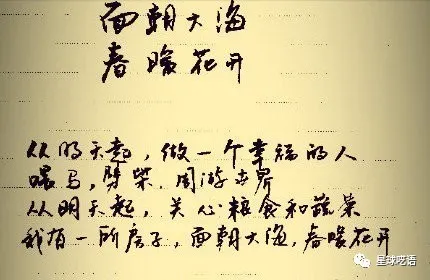 面朝大海
春暖花开
从明天起，做一个幸福的人
喂马，劈柴，周游世界
从明天起，关心粮食和蔬菜
我有一所房子，面朝大海，春暖花开
星球呓语